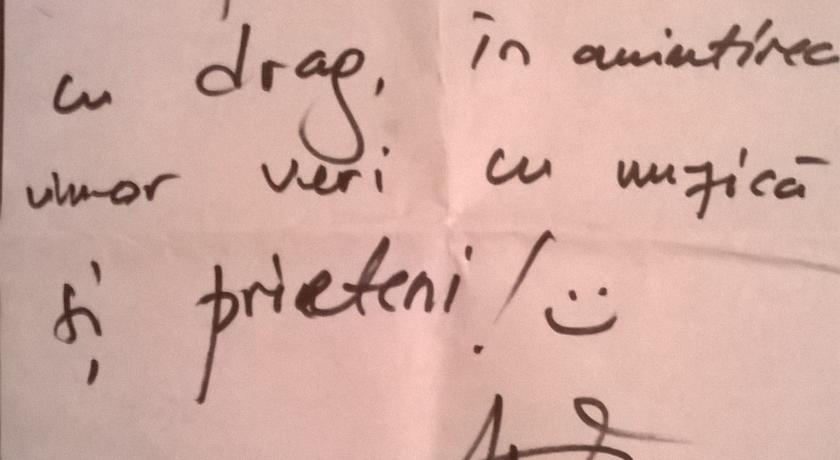 cu drag, în amintirea
unor veri cu muzică
și prieteni! :)